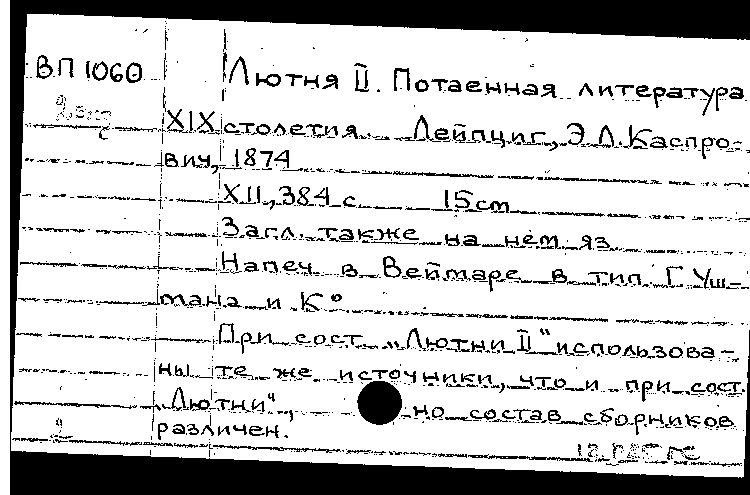 ВП 1060
Лютня II. Потаенная литература
2 экз
XIX столетия. Лейпциг, Э.Л. Каспро-
вич, 1874
XII, 384 с 15 см
Загл. также на нем яз.
Напеч в Веймаре в тип. Г. Уш-
мана и К°
При сост. „Лютни II" использова-
ны те же источники, что и при сост.
„Лютни", но состав сборников
различен.
2